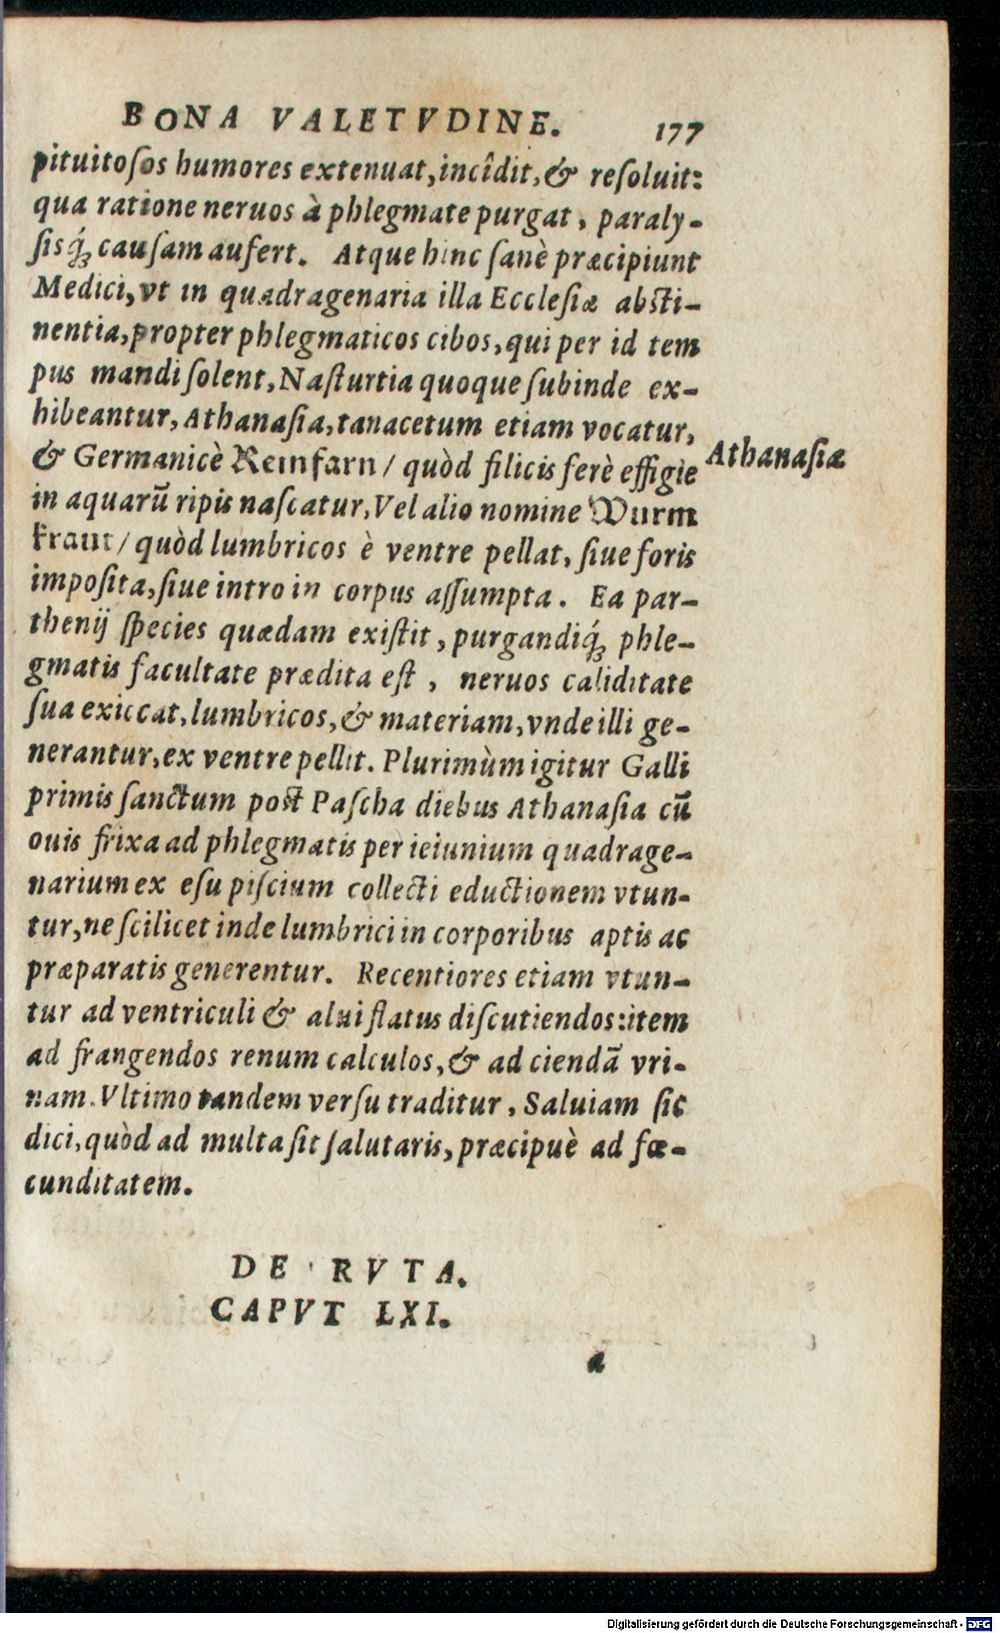 BONA VALETVDINE. 177
pituitoſos humores extenuat, incîdit, & reſoluit:
qua ratione neruos à phlegmate purgat, paraly-
ſisq́; cauſam aufert. Atque hinc ſanè præcipiunt
Medici, vt in quadragenaria illa Ecclesiæ absti-
nentia, propter phlegmaticos cibos, qui per id tem
pus mandi ſolent, Naſturtia quoque ſubinde ex-
hibeantur, Athanaſia, tanacetum etiam vocatur,
& Germanicè Reinfarn / quòd filicis ferè effigie
Athanaſiæ
in aquarũ ripis naſcatur, Vel alio nomine Wurm
kraut / quòd lumbricos è ventre pellat, ſiue foris
impoſita, ſiue intro in corpus aſſumpta. Ea par-
thenij ſpecies quædam exiſtit, purgandiq́; phle-
gmatis facultate prædita eſt, neruos caliditate
ſua exiccat, lumbricos, & materiam, vnde illi ge-
nerantur, ex ventre pellit. Plurimùm igitur Galli
primis ſanctum post Paſcha diebus Athanaſia cũ
ouis frixa ad phlegmatis per ieiunium quadrage-
narium ex eſu piſcium collecti eductionem vtun-
tur, ne ſcilicet inde lumbrici in corporibus aptis ac
præparatis generentur. Recentiores etiam vtun-
tur ad ventriculi & alui flatus diſcutiendos: item
ad frangendos renum calculos, & ad ciendã vri-
nam. Vltimo tandem verſu traditur, Saluiam ſic
dici, quòd ad multa ſit ſalutaris, præcipuè ad fœ-
cunditatem.
DE RVTA.
CAPVT LXI.
a
Digitalisierung gefördert durch die Deutsche Forschungsgemeinschaft - DFG